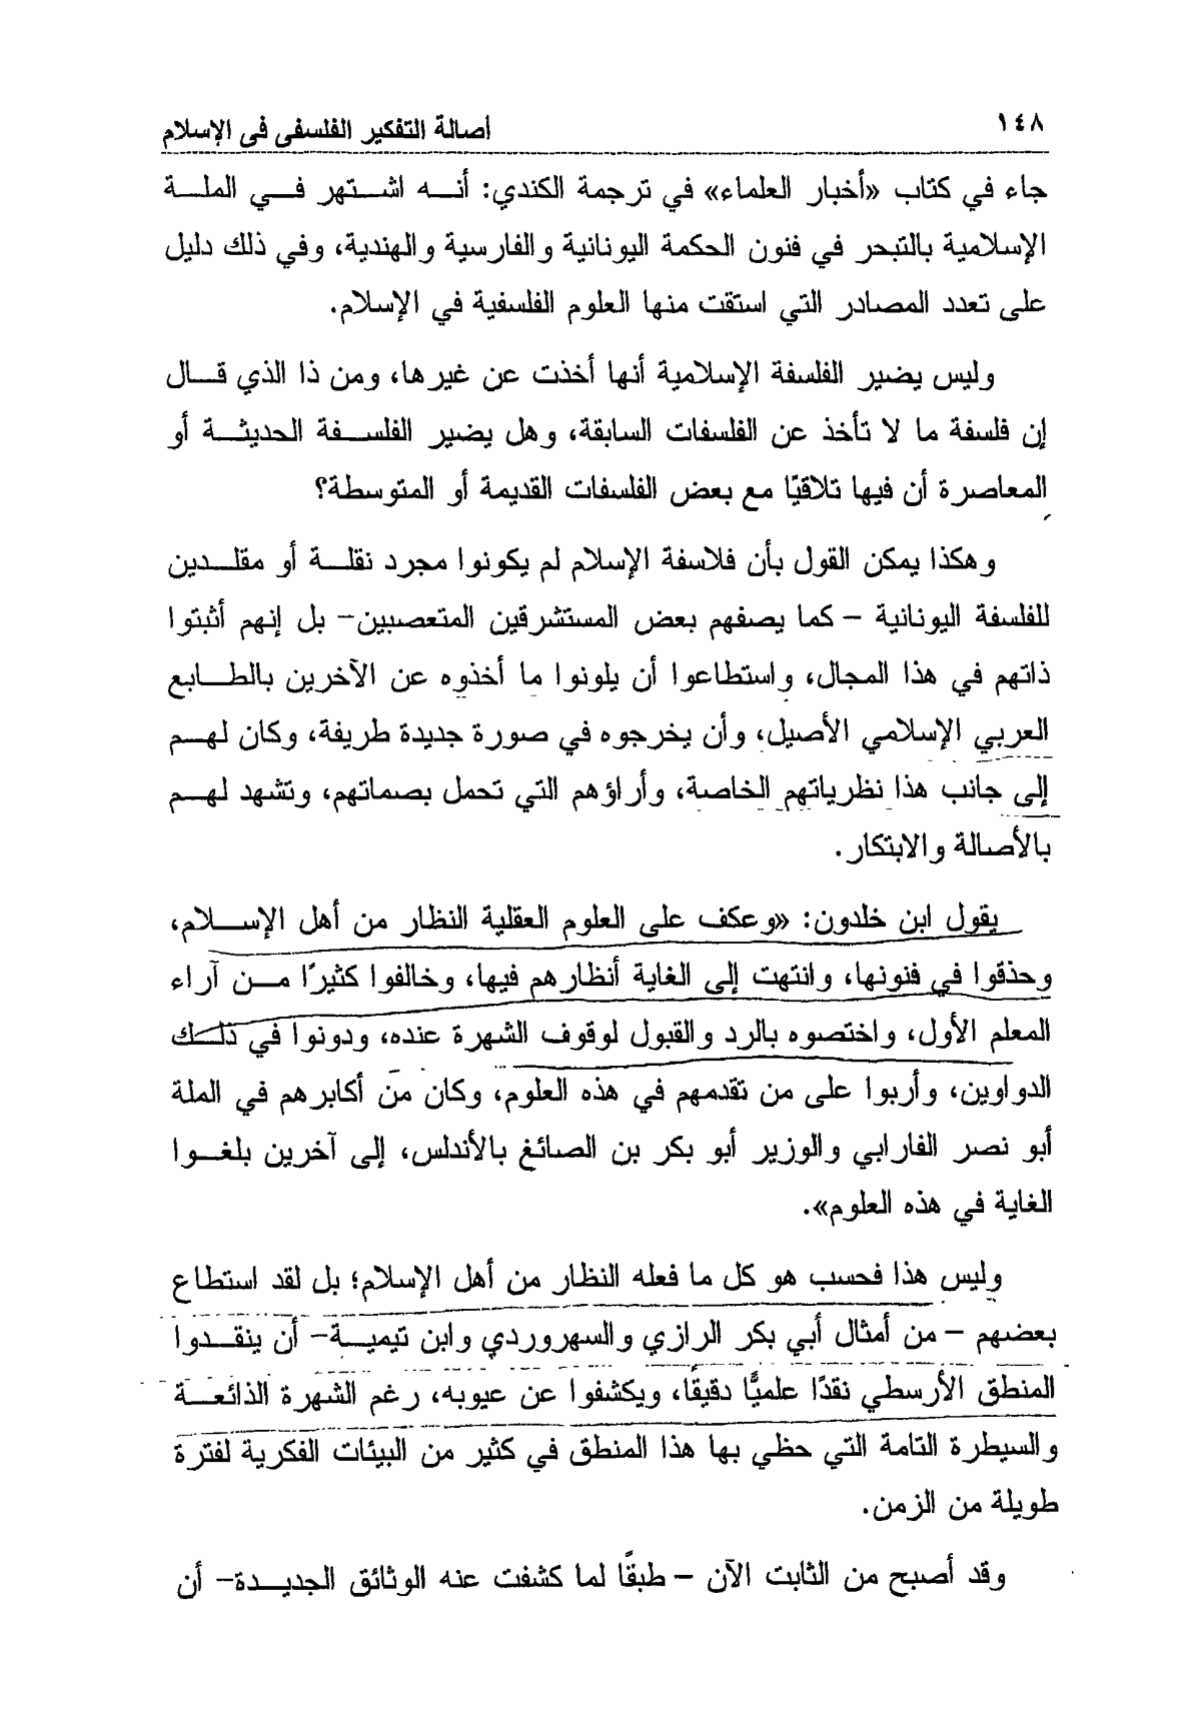 ١٤٨
أصالة التفكير الفلسفى فى الإسلام
جاء في كتاب «أخبار العلماء» في ترجمة الكندي: أنه اشتهر في الملة
الإسلامية بالتبحر في فنون الحكمة اليونانية والفارسية والهندية، وفي ذلك دليل
على تعدد المصادر التي استقت منها العلوم الفلسفية في الإسلام.
وليس يضير الفلسفة الإسلامية أنها أخذت عن غيرها، ومن ذا الذي قال
إن فلسفة ما لا تأخذ عن الفلسفات السابقة، وهل يضير الفلسفة الحديثة أو
المعاصرة أن فيها تلاقيًا مع بعض الفلسفات القديمة أو المتوسطة؟
وهكذا يمكن القول بأن فلاسفة الإسلام لم يكونوا مجرد نقلة أو مقلدين
للفلسفة اليونانية – كما يصفهم بعض المستشرقين المتعصبين– بل إنهم أثبتوا
ذاتهم في هذا المجال، واستطاعوا أن يلونوا ما أخذوه عن الآخرين بالطابع
العربي الإسلامي الأصيل، وأن يخرجوه في صورة جديدة طريفة، وكان لهم
إلى جانب هذا نظرياتهم الخاصة، وأراؤهم التي تحمل بصماتهم، وتشهد لهم
بالأصالة والابتكار.
يقول ابن خلدون: «وعكف على العلوم العقلية النظار من أهل الإسلام،
وحذقوا في فنونها، وانتهت إلى الغاية أنظارهم فيها، وخالفوا كثيرًا من آراء
المعلم الأول، واختصوه بالرد والقبول لوقوف الشهرة عنده، ودونوا في ذلك
الدواوين، وأربوا على من تقدمهم في هذه العلوم، وكان من أكابرهم في الملة
أبو نصر الفارابي والوزير أبو بكر بن الصائغ بالأندلس، إلى آخرين بلغوا
الغاية في هذه العلوم».
وليس هذا فحسب هو كل ما فعله النظار من أهل الإسلام؛ بل لقد استطاع
بعضهم – من أمثال أبي بكر الرازي والسهروردي وابن تيمية– أن ينقدوا
المنطق الأرسطي نقدًا علميًّا دقيقًا، ويكشفوا عن عيوبه، رغم الشهرة الذائعة
والسيطرة التامة التي حظي بها هذا المنطق في كثير من البيئات الفكرية لفترة
طويلة من الزمن.
وقد أصبح من الثابت الآن – طبقًا لما كشفت عنه الوثائق الجديدة– أن